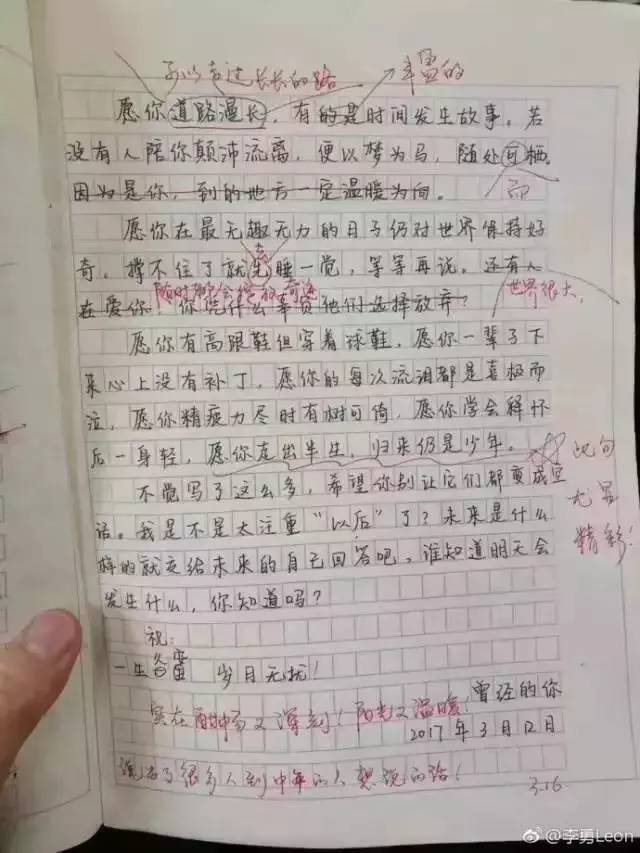 可以走过长长的路 丰盈的
愿你道路漫长,有的是时间发生故事。若
没有人陪你颠沛流离,便以梦为马,随处可栖。
而
因为是你,到的地方一定温暖为向。
愿你在最无趣无力的日子仍对世界保持好
奇,撑不住了就先睡一觉,等等再说。还有人
随时都会绽放奇迹 世界很大。
在爱你,你凭什么辜负他们选择放弃?
愿你有高跟鞋但穿着球鞋,愿你一辈子下
来心上没有补丁,愿你的每次流泪都是喜极而
泣,愿你精疲力尽时有树可倚,愿你学会释怀
后一身轻,愿你走出半生,归来仍是少年。
此句
尤显
精彩.
不觉写了这么多,希望你别让它们都变成空
话。我是不是太注重“以后”了?未来是什么
样的就交给未来的自己回答吧,谁知道明天会
发生什么,你知道吗?
祝:
一生备蜜 岁月无扰!
曾经的你
实在酣畅又深刻!阳光又温暖!
2017年3月12日
说出了很多人到中年的人想说的话!
3.16
@李勇Leon